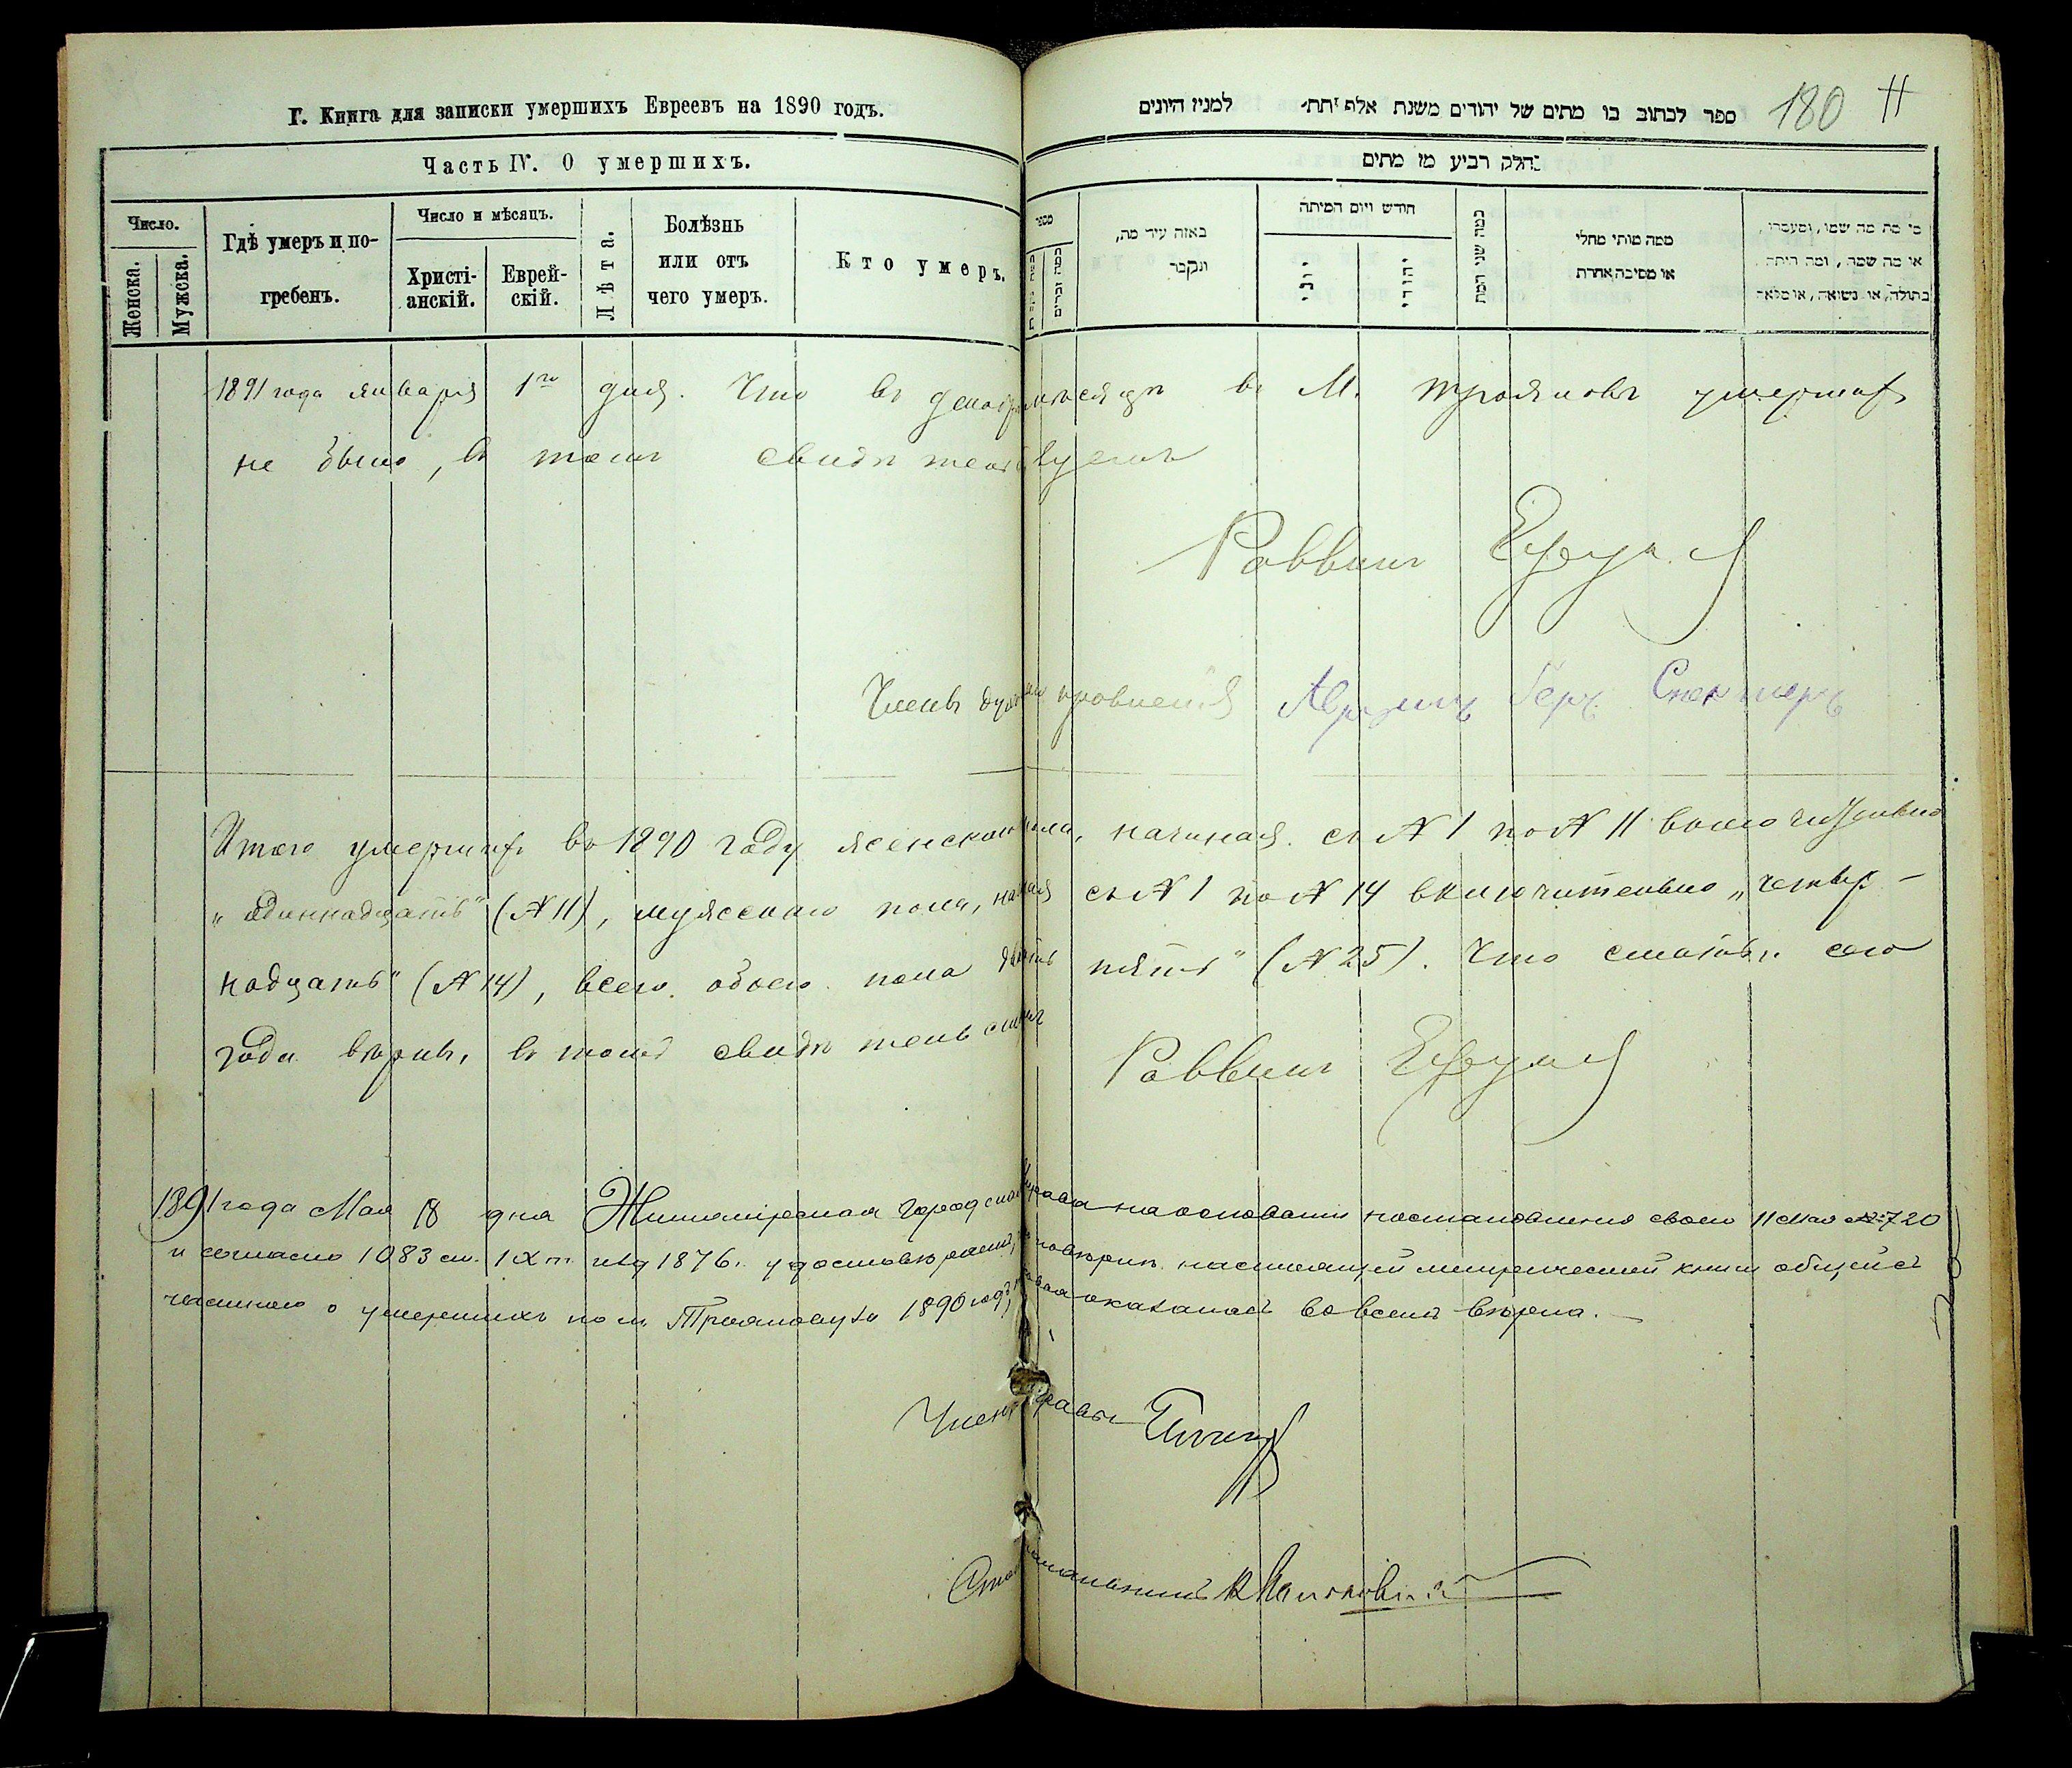 Г. Книга для записки умершихъ Евреевъ на 1890 годъ.
Часть IV. О умершихъ.
Число.
Женска.
Мужска.
Гдѣ умеръ и по-
гребенъ.
Число и мѣсяцъ.
Христі-
анскій.
Еврей-
скій.
Лѣта.
Болѣзнь
или отъ
чего умеръ.
Кто умеръ.
ספר לכתוב בו מתים של יהודים משנת אלף למנין היונים
180 11
חלק רביע מן מתים
מספר
באזה עיר מת,
ונקבר
חודש ויום המיתה
יוני
יהודי
כמה שני המת
ממה מותי מחלי
או מסיבה אחרת
מי מת מה שמו,
או מה שמה, ומה היתה
בתולה, או נשואה, או
1891 года января 1го дня. Что въ декабрѣ мѣсяцѣ въ м. Трояновѣ умершихъ
не было, въ томъ свидѣтельствуемъ
Раввинъ
Членъ духовн. правленія Герш. Спекторъ
Итого умершихъ въ 1890 году женскаго пола, начиная съ № 1 по № 11 включительно
„одиннадцать" (№ 11), мужескаго пола, начиная съ № 1 по № 14 включительно „четыр-
надцать" (№ 14), всего обоего пола двадцать пять" (№ 25). Что статьи сего
года вѣрны, въ томъ свидѣтельствую
Раввинъ
1891 года Мая 18 дня Житомірская Городская Управа на основаніи постановленія своего 11 Мая № 720
и согласно 1083 ст. IX т. изд 1876 г. удостовѣряетъ, что по повѣркѣ настоящей метрической книги общей съ
частною о умершихъ по м. Троянову за 1890 годъ, таковая оказалась во всемъ вѣрна.
Членъ Управы